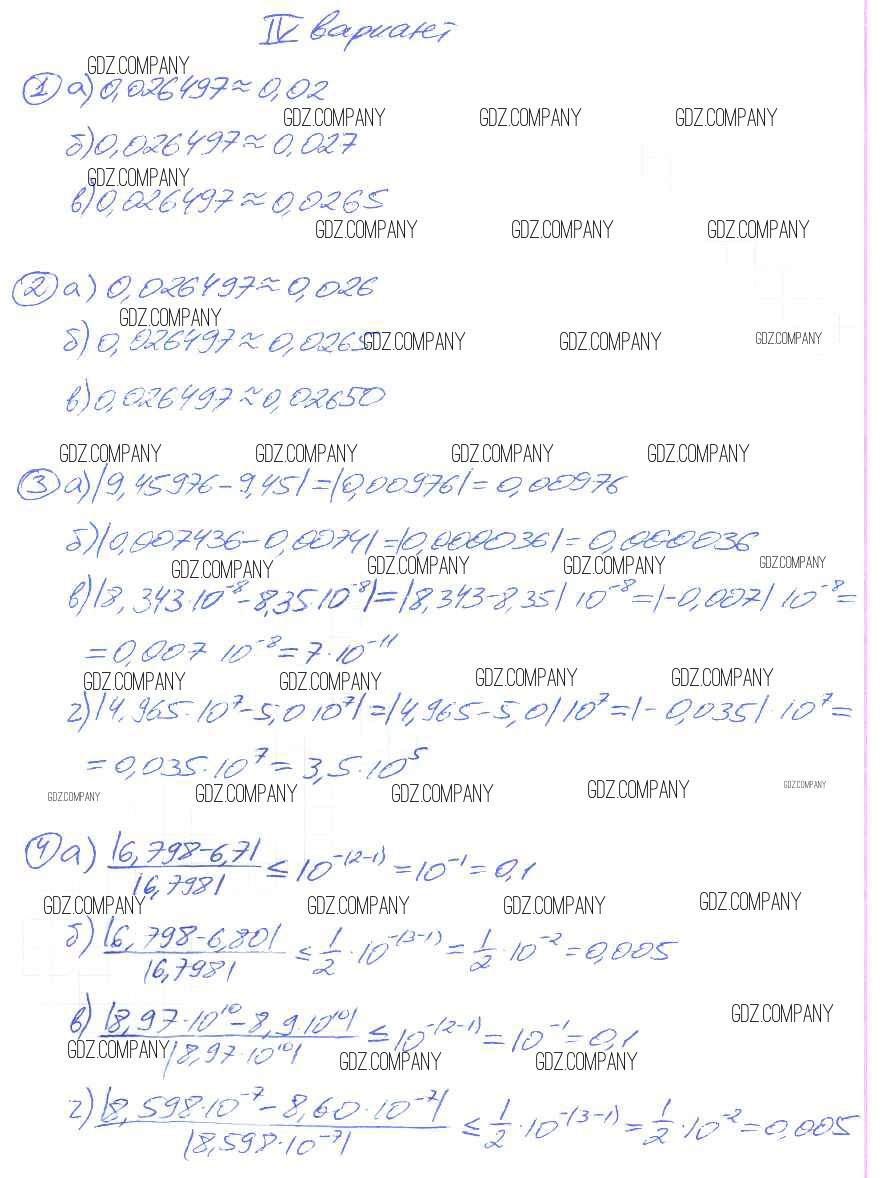 IV вариант
GDZ.COMPANY
① а) 0,026497 ≈ 0,02
GDZ.COMPANY GDZ.COMPANY GDZ.COMPANY
б) 0,026497 ≈ 0,027
GDZ.COMPANY
в) 0,026497 ≈ 0,0265
GDZ.COMPANY GDZ.COMPANY GDZ.COMPANY
② а) 0,026497 ≈ 0,026
GDZ.COMPANY
б) 0,026497 ≈ 0,0265
GDZ.COMPANY GDZ.COMPANY GDZ.COMPANY
в) 0,026497 ≈ 0,02650
GDZ.COMPANY GDZ.COMPANY GDZ.COMPANY GDZ.COMPANY
③ а) |9,45976 - 9,45| = |0,00976| = 0,00976
б) |0,007436 - 0,0074| = |0,000036| = 0,000036
GDZ.COMPANY GDZ.COMPANY GDZ.COMPANY GDZ.COMPANY
в) |8,343·10⁻⁸ - 8,35·10⁻⁸| = |8,343 - 8,35| 10⁻⁸ = |-0,007| 10⁻⁸ =
= 0,007 10⁻⁸ = 7·10⁻¹¹
GDZ.COMPANY GDZ.COMPANY GDZ.COMPANY GDZ.COMPANY
г) |4,965·10⁷ - 5,0 10⁷| = |4,965 - 5,0| 10⁷ = |-0,035|·10⁷ =
= 0,035·10⁷ = 3,5·10⁵
GDZ.COMPANY GDZ.COMPANY GDZ.COMPANY GDZ.COMPANY GDZ.COMPANY
④ а) |6,798 - 6,7| / |6,798| ≤ 10⁻⁽²⁻¹⁾ = 10⁻¹ = 0,1
GDZ.COMPANY GDZ.COMPANY GDZ.COMPANY GDZ.COMPANY
б) |6,798 - 6,80| / |6,798| ≤ 1/2 · 10⁻⁽³⁻¹⁾ = 1/2 · 10⁻² = 0,005
GDZ.COMPANY
в) |8,97·10¹⁰ - 8,9·10¹⁰| / |8,97·10¹⁰| ≤ 10⁻⁽²⁻¹⁾ = 10⁻¹ = 0,1
GDZ.COMPANY GDZ.COMPANY GDZ.COMPANY
г) |8,598·10⁻⁷ - 8,60·10⁻⁷| / |8,598·10⁻⁷| ≤ 1/2 · 10⁻⁽³⁻¹⁾ = 1/2 · 10⁻² = 0,005